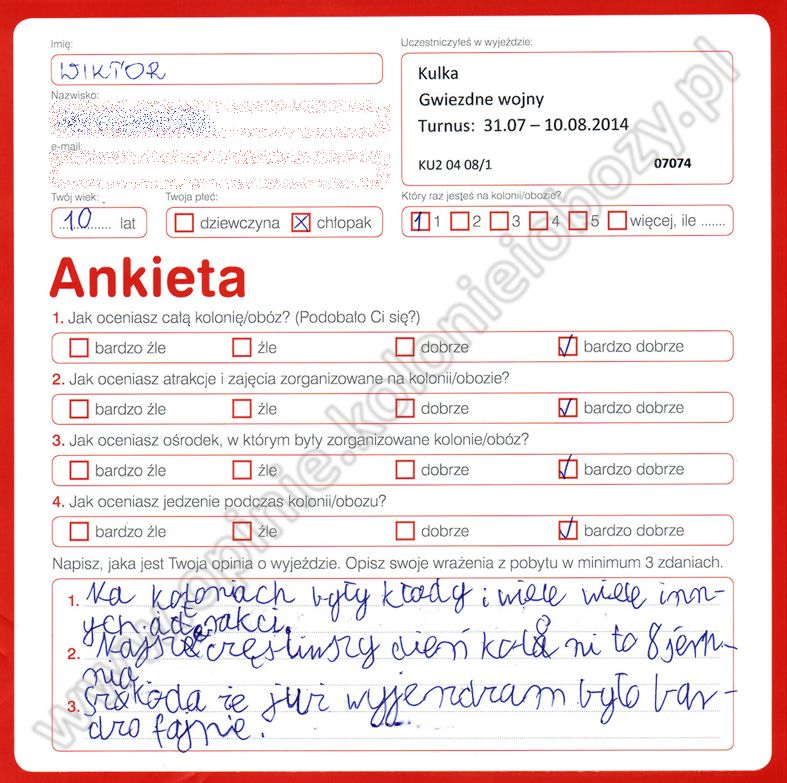 Imię:
Uczestniczyłeś w wyjeździe:
WIKTOR
Kulka
Gwiezdne wojny
Turnus: 31.07 – 10.08.2014
KU2 04 08/1 07074
Nazwisko:
e-mail:
Twój wiek: Twoja płeć: Który raz jesteś na kolonii/obozie?
10 lat dziewczyna chłopak 1 2 3 4 5 więcej, ile .......
Ankieta
1. Jak oceniasz całą kolonię/obóz? (Podobało Ci się?)
bardzo źle źle dobrze bardzo dobrze
2. Jak oceniasz atrakcje i zajęcia zorganizowane na kolonii/obozie?
bardzo źle źle dobrze bardzo dobrze
3. Jak oceniasz ośrodek, w którym były zorganizowane kolonie/obóz?
bardzo źle źle dobrze bardzo dobrze
4. Jak oceniasz jedzenie podczas kolonii/obozu?
bardzo źle źle dobrze bardzo dobrze
Napisz, jaka jest Twoja opinia o wyjeździe. Opisz swoje wrażenia z pobytu w minimum 3 zdaniach.
1. Na koloniach były kłody i wiele wiele inn-
ych
2. dień ni to 8
nia
3. że już wyjendzam było bar-
dzo fajnie.
www.opinie.kolonieiobozy.pl